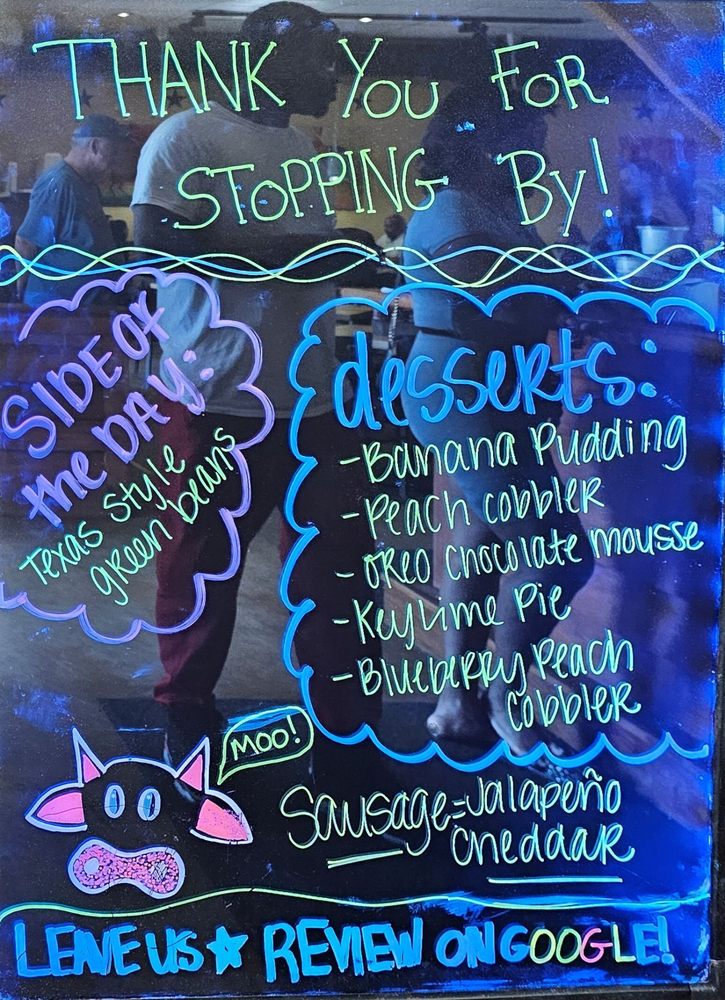 THANK YOU FOR
STOPPING BY!
SIDE OF
the DAY:
Texas Style
green beans
desserts:
-Banana Pudding
-Peach cobbler
-OREO Chocolate mousse
-Key Lime Pie
-Blueberry Peach
cobbler
MOO!
Sausage=Jalapeño
cheddar
LEAVE US ★ REVIEW ON GOOGLE!